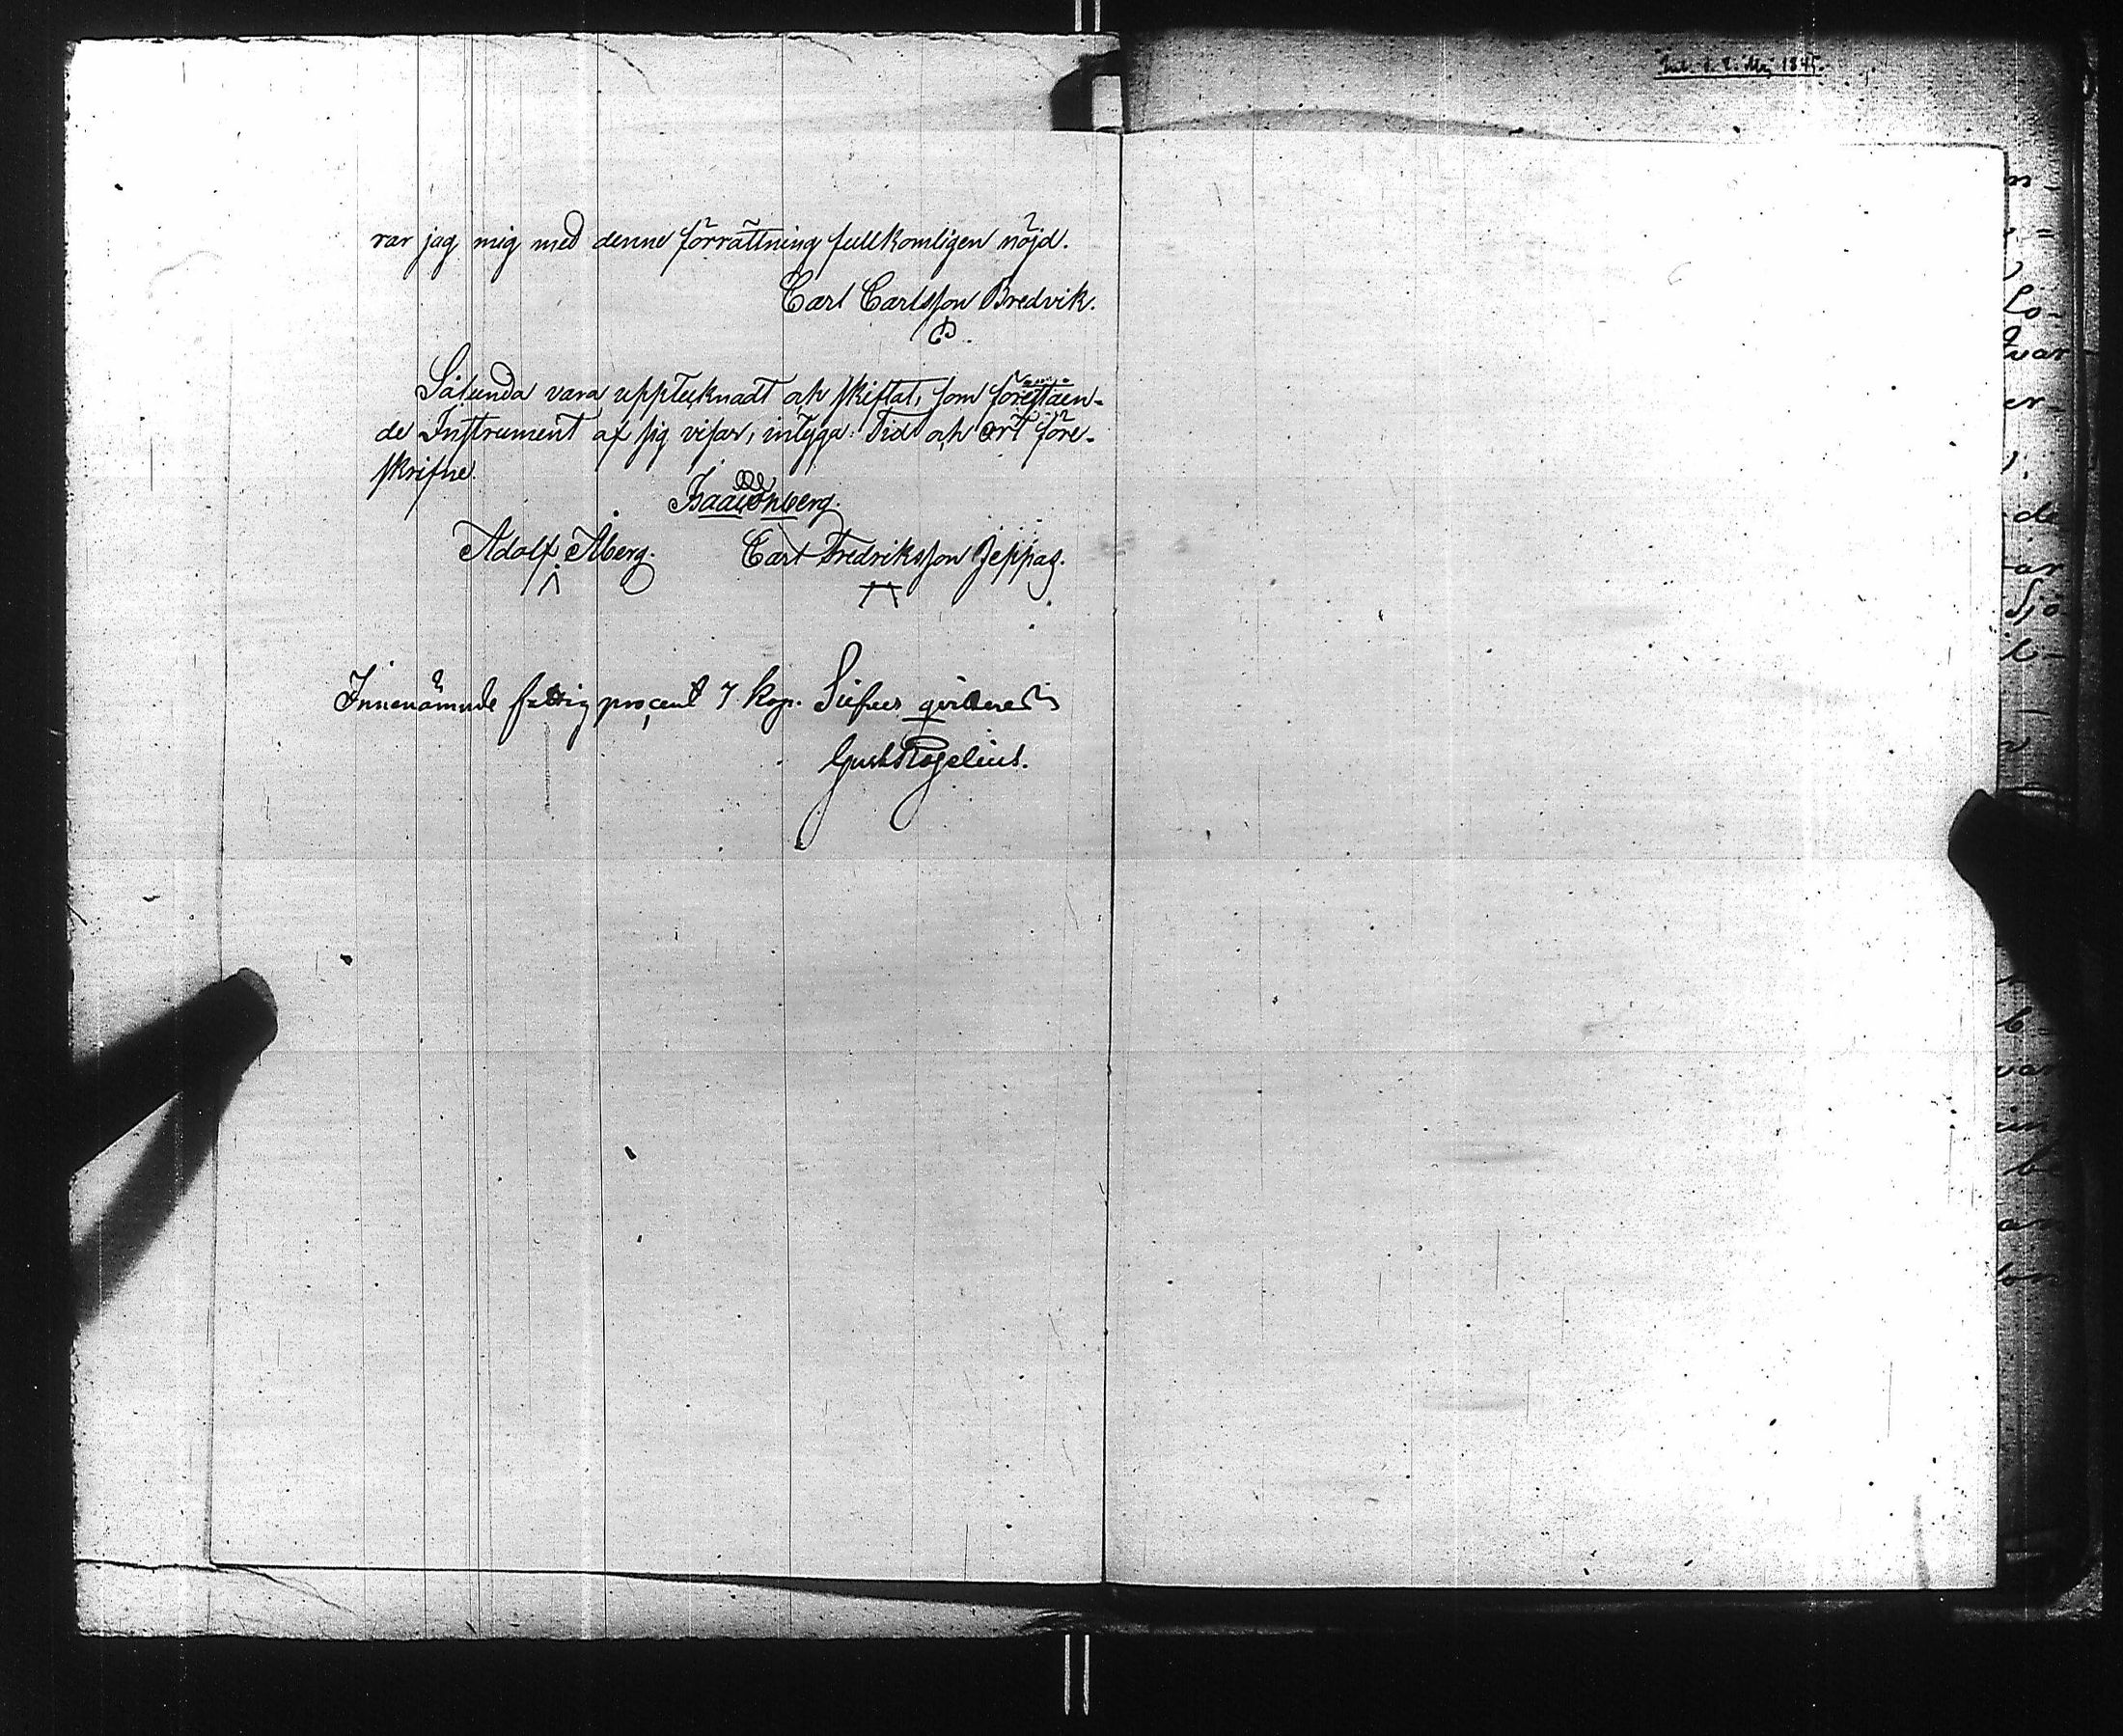 Inl. d. 2. Maj 1845.
rar jag mig med denne förrättning fullkomligen nöjd.
Carl Carlsson Bredvik.
Sålunda vara upptecknadt och skiftat, som förestaen-
de Instrument af sig visar, intyga: Tid och ort före-
skrifne.
Adolf Åberg. Carl Fredriksson Jeppas.
Innenämnde fattig procent 7 kop. Silfver qvitteras
Gust Rogelius.
Co-
var
er,
de
ar
Sjö
b
var
b
an